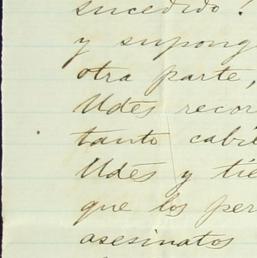 sucedido!
y supong
otra parte,
Udes recor
tanto cabie
Udes y tie
que los per
asesinatos